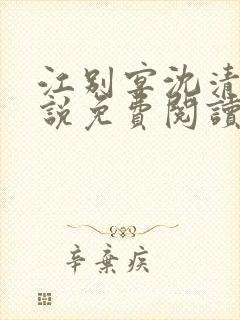 江别宴沈清
説免費閱讀
辛棄疾